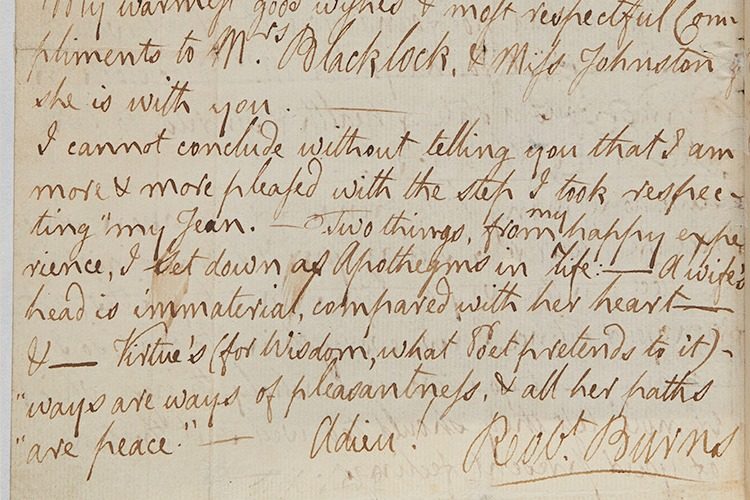 My warmest good wishes & most respectful Com-
pliments to Mrs Blacklock, & Miss Johnston
she is with you. —
I cannot conclude without telling you that I am
more & more pleased with the step I took respec-
ting "my Jean. — Two things, from my happy expe
rience, I set down as Apothegms in Life: — A wife's
head is immaterial, compared with her heart —
& — Virtue's (for Wisdom, what Poet pretends to it) -
"ways are ways of pleasantness, & all her paths
"are peace." — Adieu. Robt. Burns